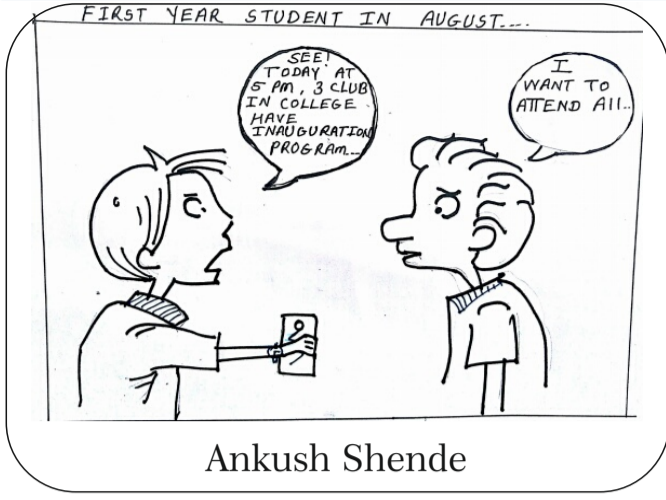 FIRST YEAR STUDENT IN AUGUST....
SEE!
TODAY AT
5 PM, 3 CLUB
IN COLLEGE
HAVE
INAUGURATION
PROGRAM...
I
WANT TO
ATTEND All..
Ankush Shende